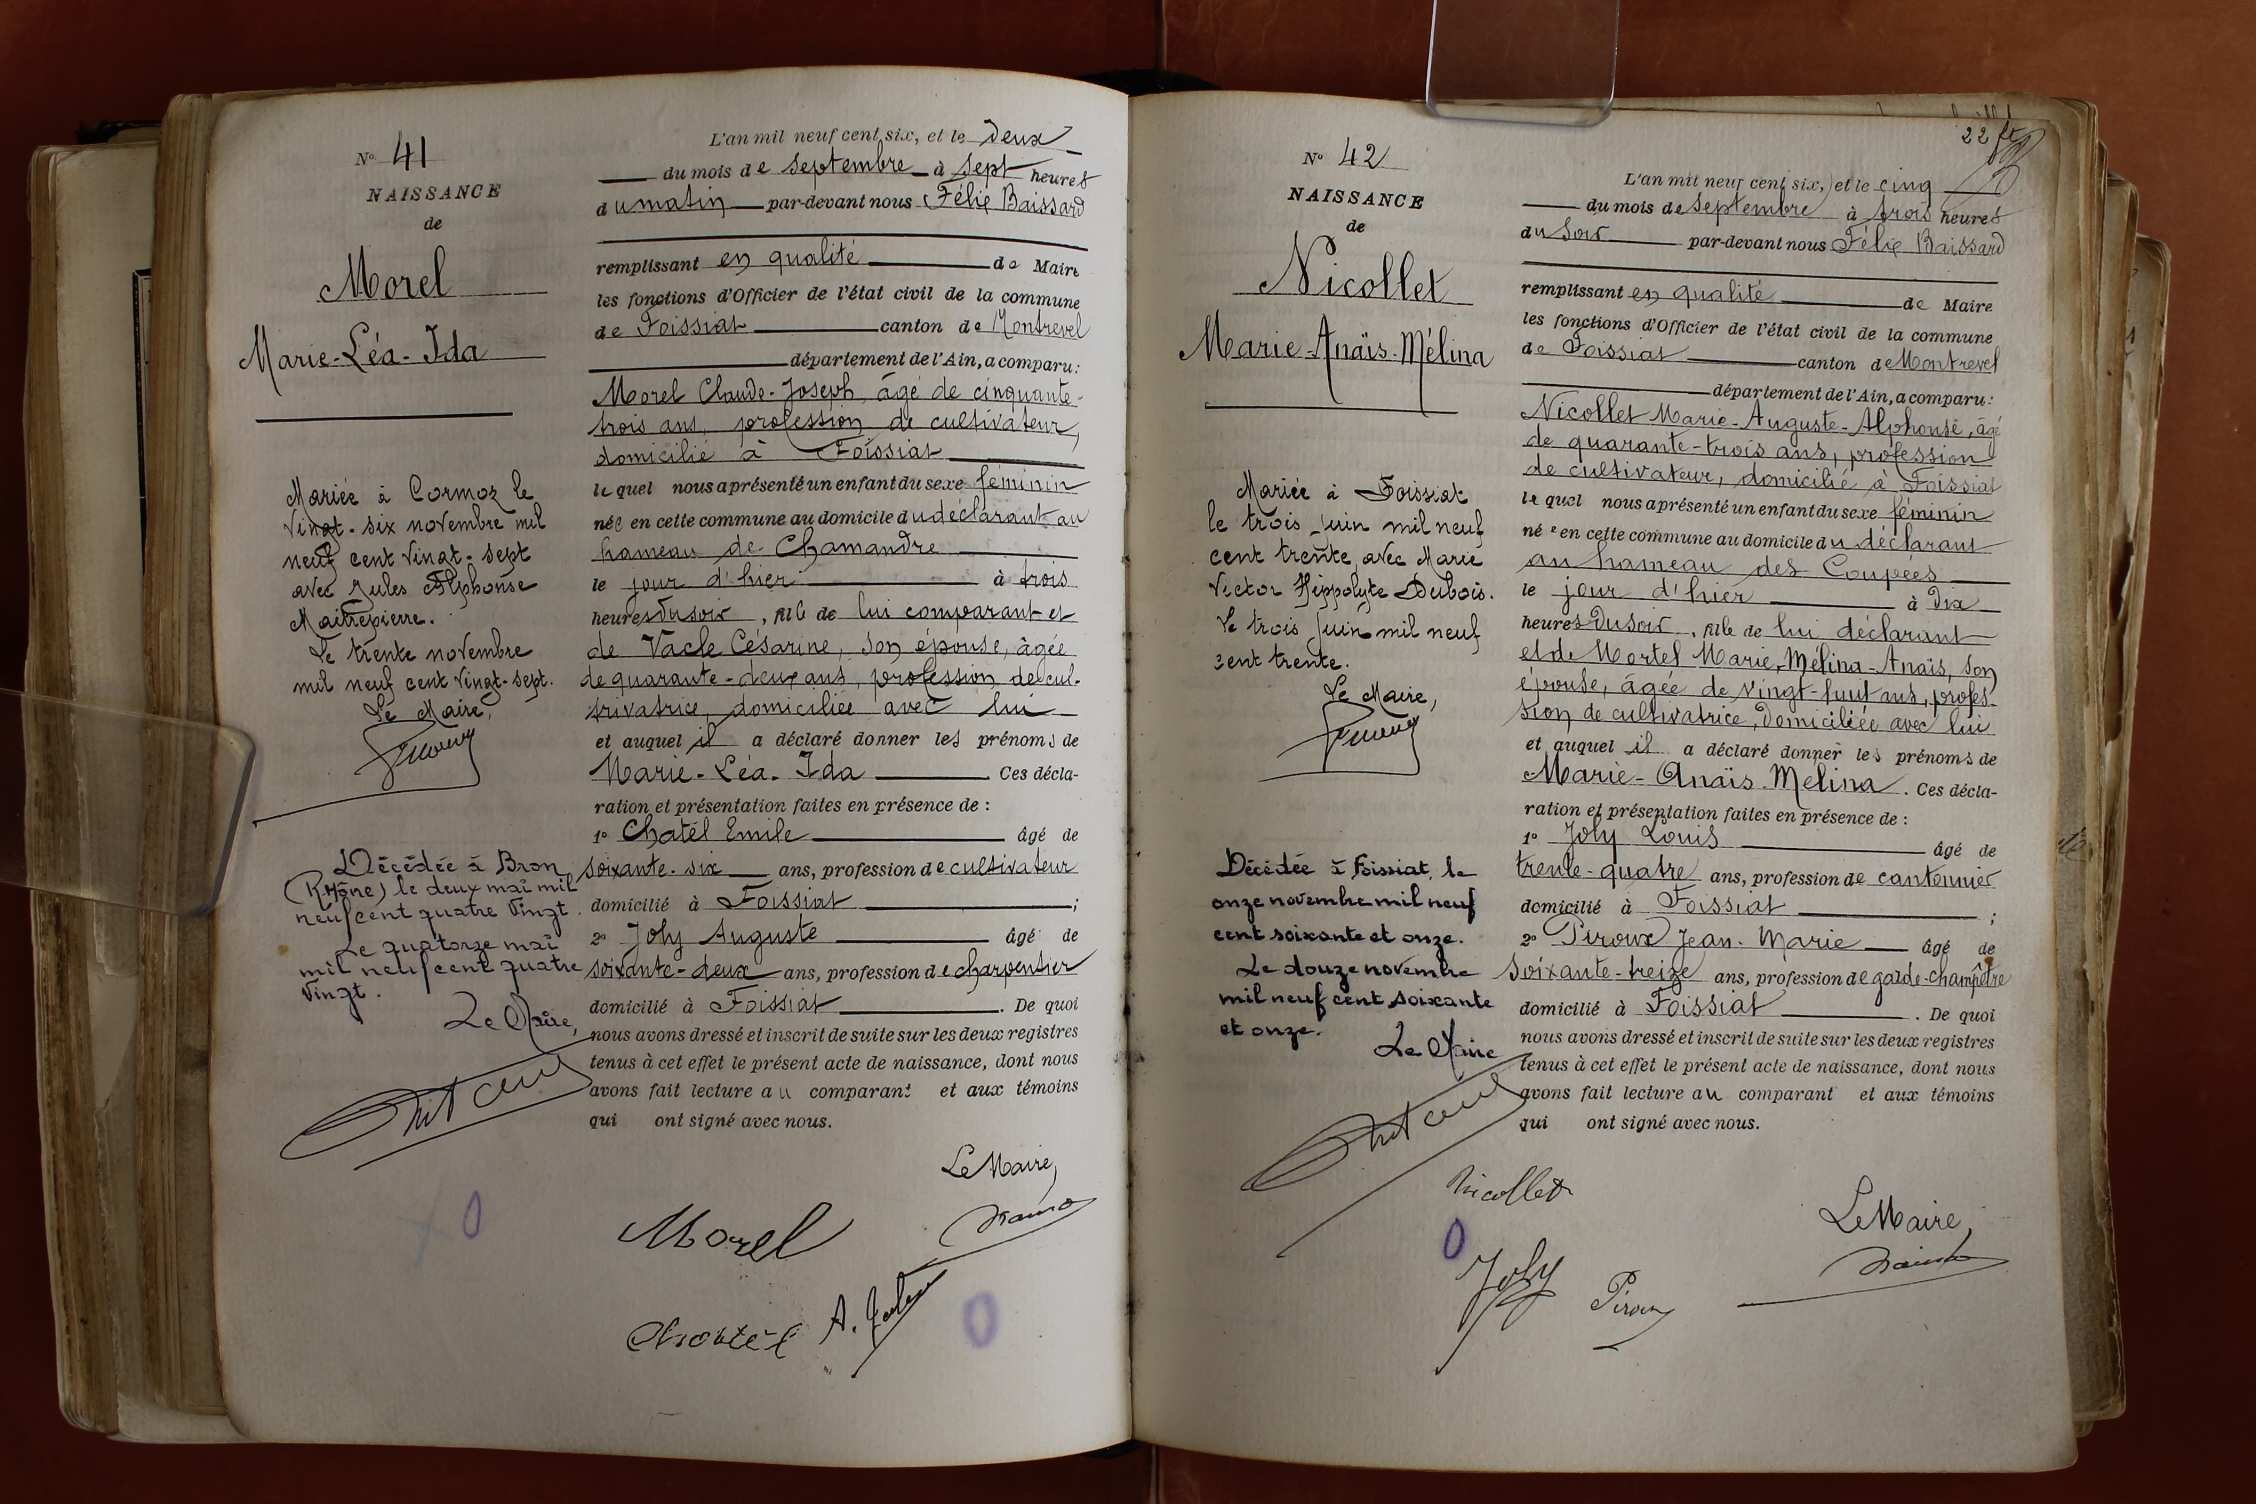 N° 41
NAISSANCE
de
Morel
Marie-Léa-Ida
Mariée à Cormoz le
vingt-six novembre mil
neuf cent vingt-sept
avec Jules Alphonse
Maitrepierre.
Le trente novembre
mil neuf cent vingt-sept.
Le Maire,
Décédée à Bron
(Rhône) le deux mai mil
neuf cent quatre vingt.
Le quatorze mai
mil neuf cent quatre
vingt.
Le Maire,
L'an mil neuf cent six, et le deux
du mois de septembre à sept heures
du matin par-devant nous Félix Baissard
remplissant en qualité de Maire
les fonctions d'Officier de l'état civil de la commune
de Foissiat canton de Montrevel
département de l'Ain, a comparu:
Morel Claude-Joseph, âgé de cinquante-
trois ans, profession de cultivateur,
domicilié à Foissiat
lequel nous a présenté un enfant du sexe féminin
née en cette commune au domicile du déclarant au
hameau de Chamandre
le jour d'hier à trois
heures du soir, fille de lui comparant et
de Vacle Césarine, son épouse, âgée
de quarante-deux ans, profession de cul-
tivatrice, domiciliée avec lui
et auquel il a déclaré donner les prénoms de
Marie-Léa-Ida Ces décla-
ration et présentation faites en présence de :
1° Chatél Emile âgé de
soixante-six ans, profession de cultivateur
domicilié à Foissiat ;
2° Joly Auguste âgé de
soixante-deux ans, profession de charpentier
domicilié à Foissiat . De quoi
nous avons dressé et inscrit de suite sur les deux registres
tenus à cet effet le présent acte de naissance, dont nous
avons fait lecture au comparant et aux témoins
qui ont signé avec nous.
Le Maire,
Morel
Chatél A. Joly
22
N° 42
NAISSANCE
de
Nicollet
Marie-Anaïs-Mélina
Mariée à Foissiat
le trois juin mil neuf
cent trente avec Marie
Victor Hippolyte Dubois.
Le trois juin mil neuf
cent trente.
Le Maire,
Décédée à Foissiat, le
onze novembre mil neuf
cent soixante et onze.
Le douze novembre
mil neuf cent soixante
et onze.
Le Maire
L'an mil neuf cent six, et le cinq
du mois de septembre à trois heures
du soir par-devant nous Félix Baissard
remplissant en qualité de Maire
les fonctions d'Officier de l'état civil de la commune
de Foissiat canton de Montrevel
département de l'Ain, a comparu:
Nicollet Marie-Auguste-Alphonse, âgé
de quarante-trois ans, profession
de cultivateur, domicilié à Foissiat
lequel nous a présenté un enfant du sexe féminin
née en cette commune au domicile du déclarant
au hameau des Coupées
le jour d'hier à dix
heures du soir, fille de lui déclarant
et de Mortel Marie-Mélina-Anaïs, son
épouse, âgée de vingt-huit ans, profes-
sion de cultivatrice, domiciliée avec lui
et auquel il a déclaré donner les prénoms de
Marie-Anaïs-Mélina. Ces décla-
ration et présentation faites en présence de :
1° Joly Louis âgé de
trente-quatre ans, profession de cantonnier
domicilié à Foissiat ;
2° Piroux Jean-Marie âgé de
soixante-treize ans, profession de garde-champêtre
domicilié à Foissiat . De quoi
nous avons dressé et inscrit de suite sur les deux registres
tenus à cet effet le présent acte de naissance, dont nous
avons fait lecture au comparant et aux témoins
qui ont signé avec nous.
Nicollet
Le Maire,
Joly Piroux